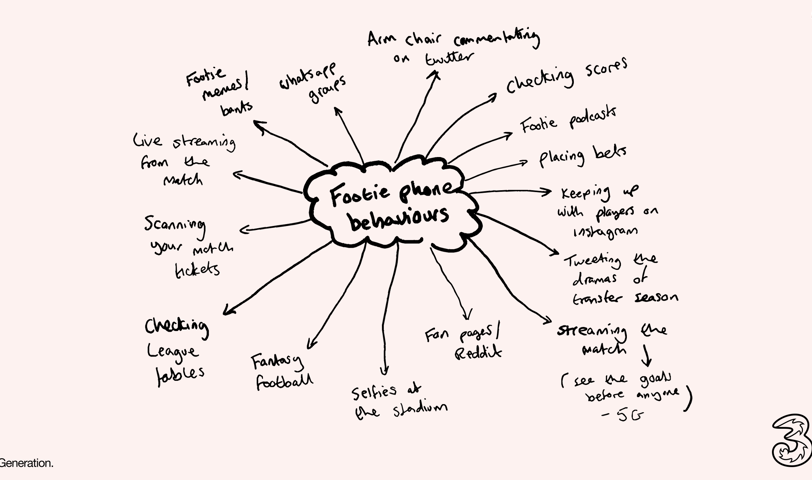 Arm chair commentating
on twitter
Footie
memes/
bants
whatsapp
groups
Checking scores
Footie podcasts
placing bets
Live streaming
from the
match
Footie phone
behaviours
Keeping up
with players on
instagram
Scanning
your match
tickets
Tweeting the
dramas of
transfer season
Checking
League
tables
Fantasy
football
Selfies at
the stadium
Fan pages/
Reddit
Streaming the
match
(see the goals
before anyone)
- 5G
3
Generation.